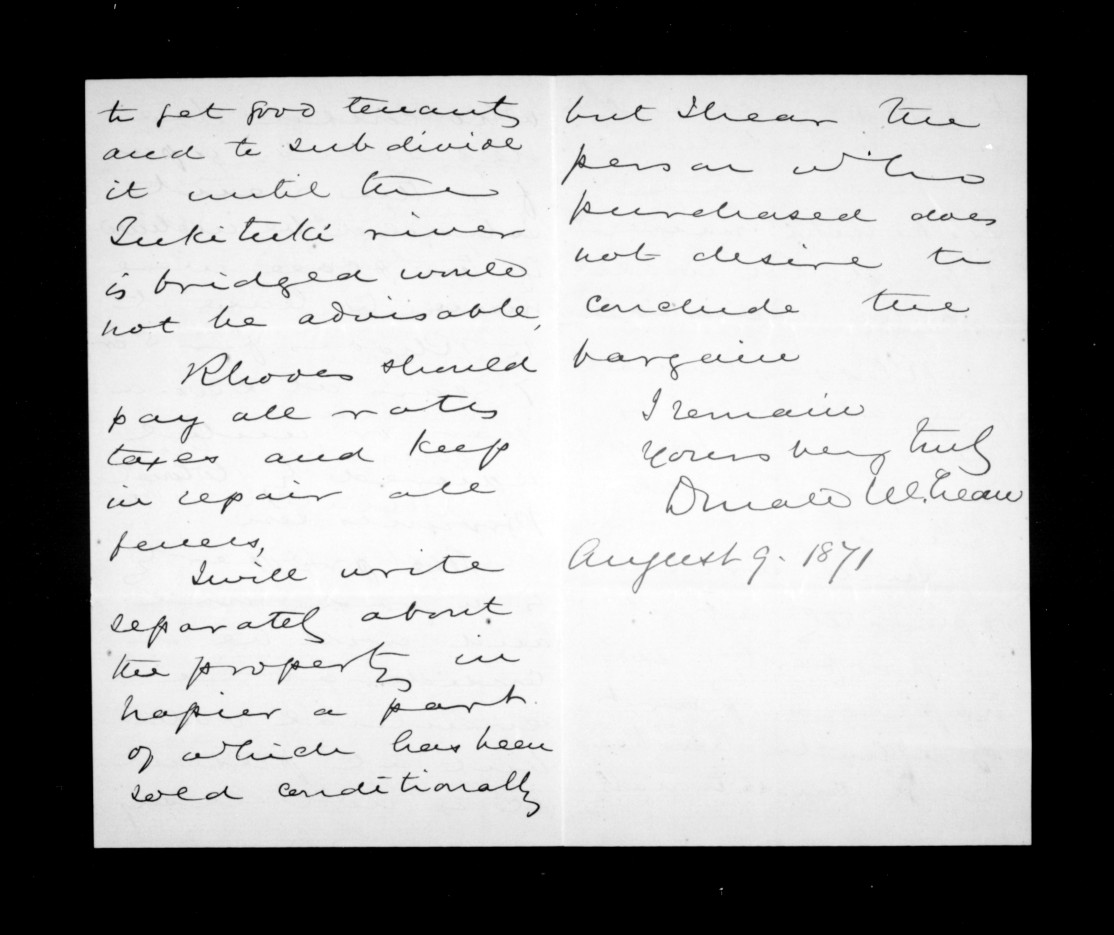 to get good tenants
and to subdivide
it until the
Tukituki river
is bridged would
not be advisable,
Rhodes should
pay all rates
taxes and keep
in repair all
fences,
I will write
separately about
the property in
Napier a part
of which has been
sold conditionally
but I hear the
person who
purchased does
not desire to
conclude the
bargain
I remain
Yours very truly
Donald McLean
August 9. 1871